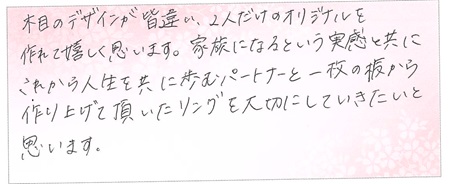 木目のデザインが皆違い、2人だけのオリジナルを
作れて嬉しく思います。家族になるという実感と共に
これから人生を共に歩むパートナーと一枚の板から
作り上げて頂いたリングを大切にしていきたいと
思います。